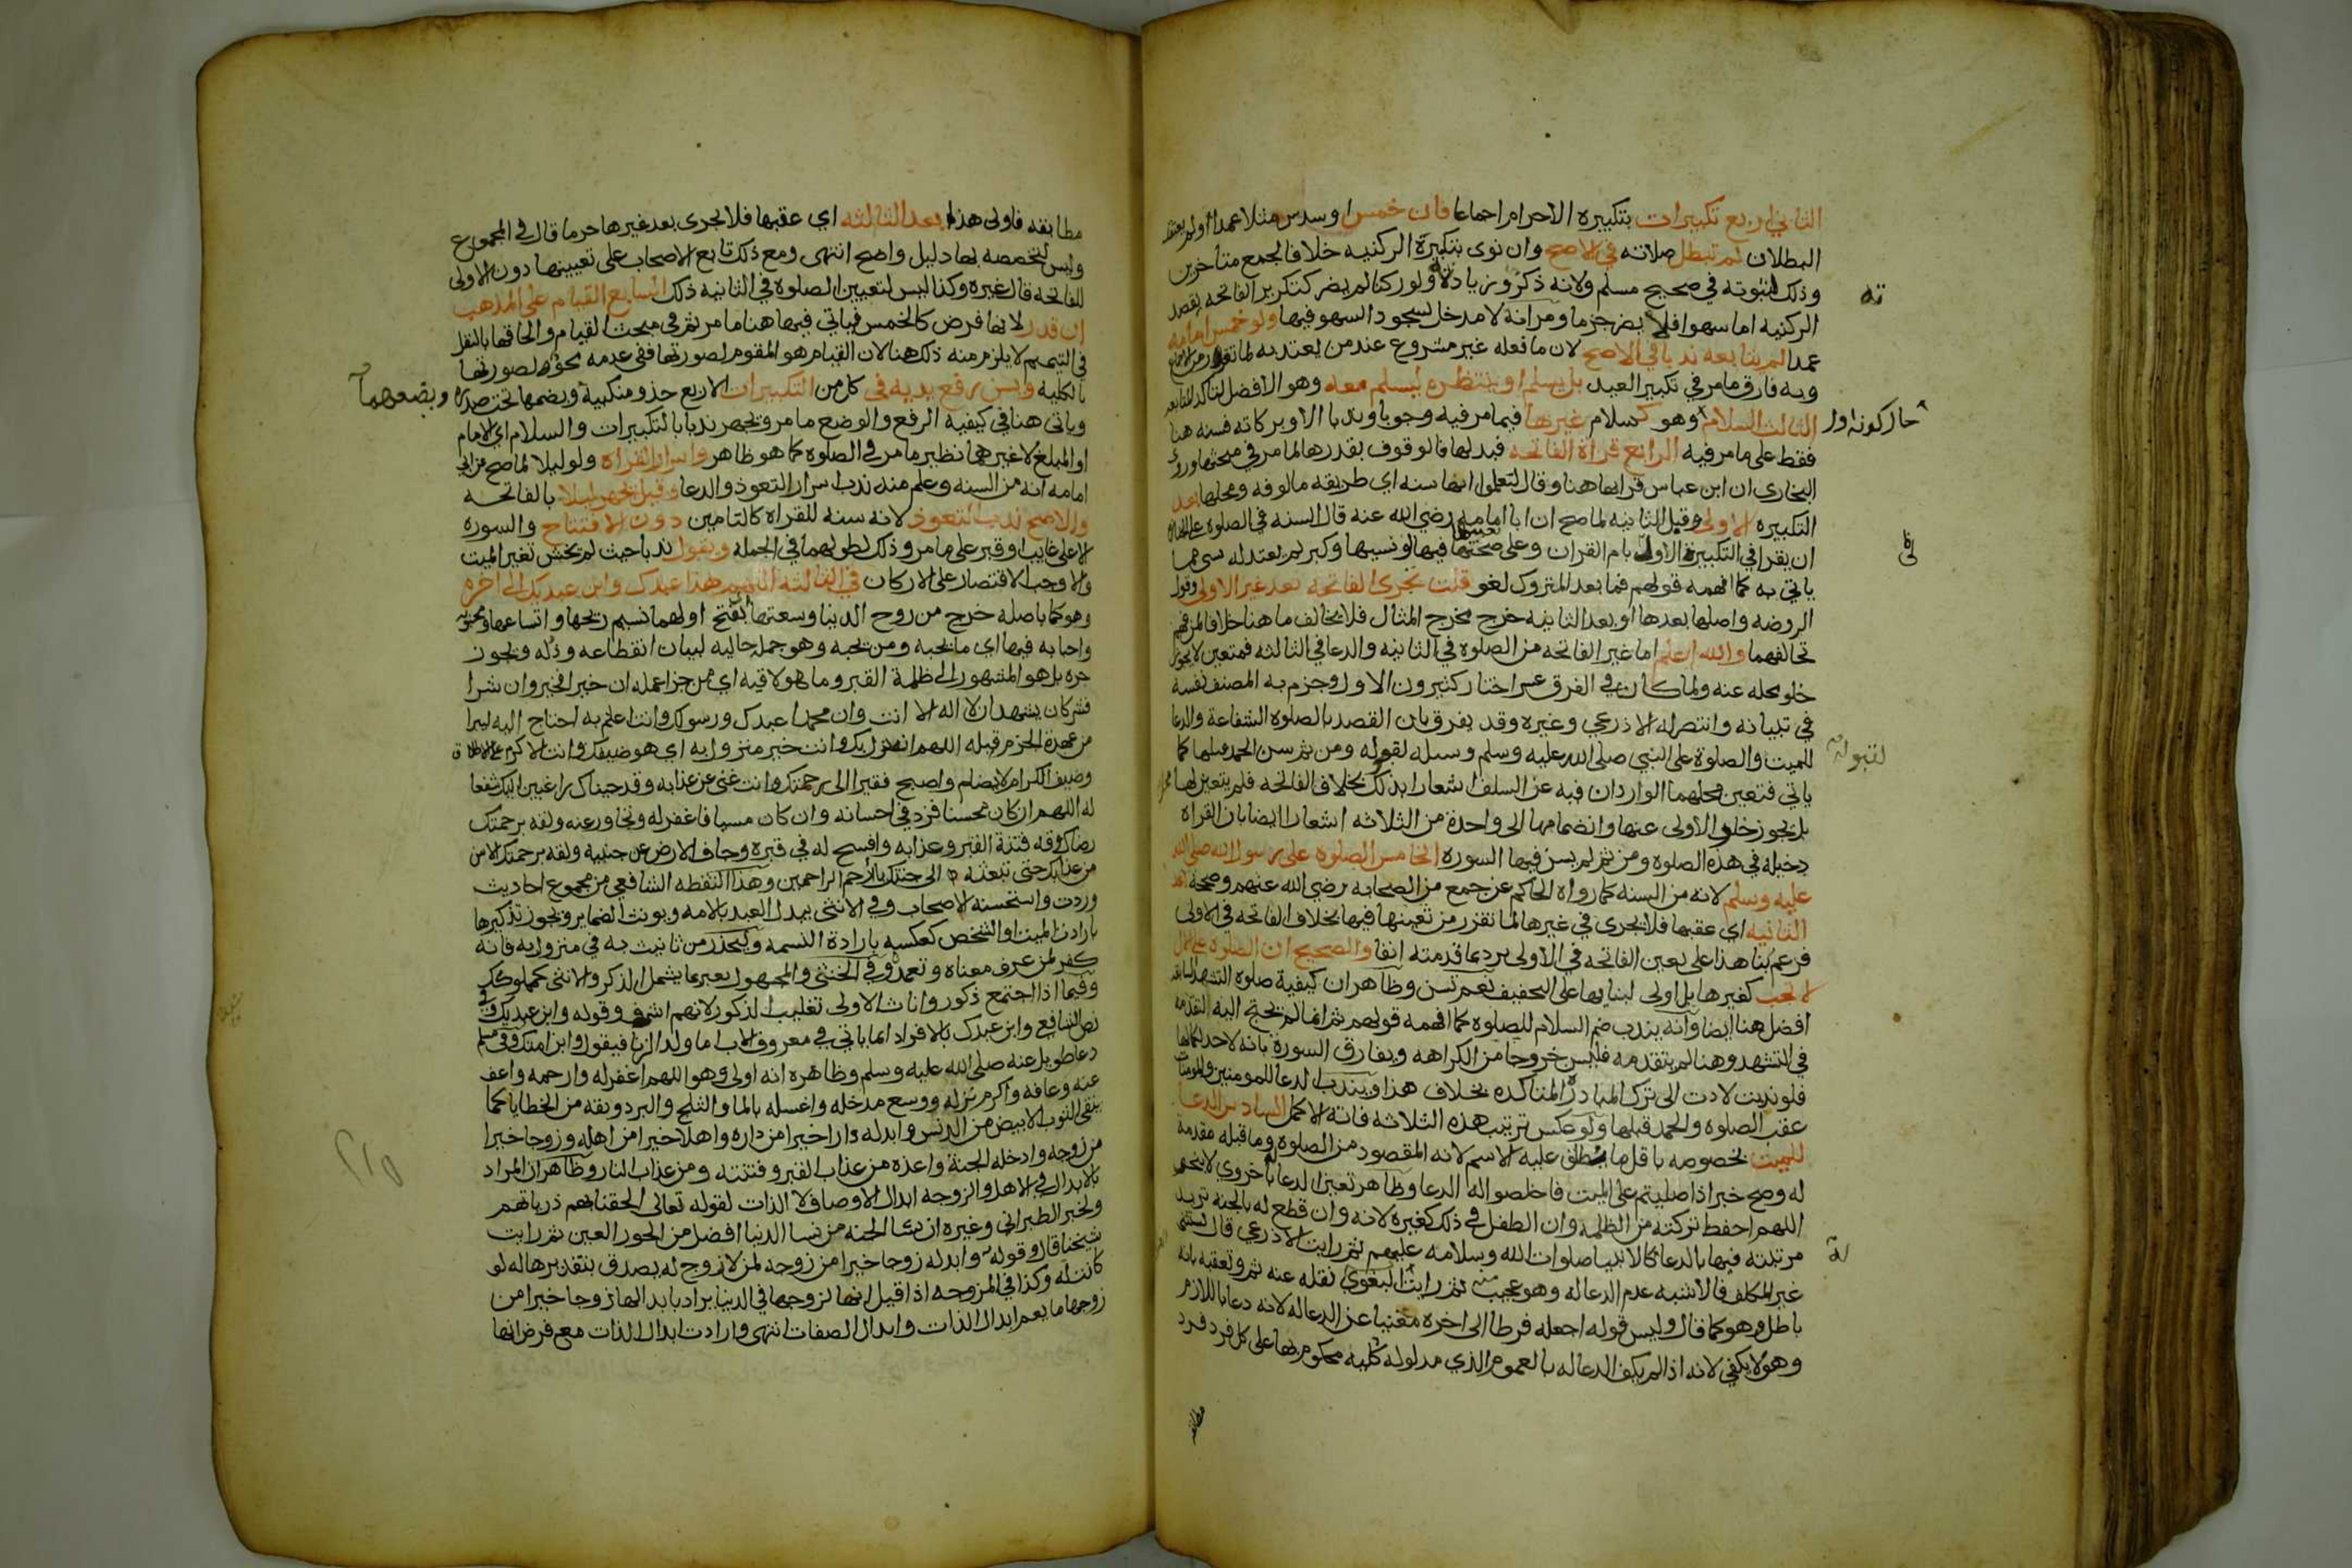 الثاني اربع تكبيرات بتكبيره الاحرام اجماعا فان خمس او سدس مثلا عمدا ولم يعتقد
البطلان لم تبطل صلاته في الاصح وان نوى بتكبيره الركنيه خلافا لجمع متاخرين
وذلك لثبوته في صحيح مسلم ولانه ذكر وزيادته ولو ركنا لم يضر كتكرير الفاتحه بقصد
الركنيه اما سهوا فلا يضر جزما ومر انه لا مدخل لسجود السهو فيها ولو خمس امامه
عمدا لم يتابعه ندبا في الاصح لان ما فعله غير مشروع عند من يعتد به لما تقرر
وبه فارق ما مر في تكبير العيد بل يسلم او ينتظره ليسلم معه وهو الافضل لتاكد المتابعه
الثالث السلام وهو كسلام غيرها فيما مر فيه وجوبا وندبا الا وبركاته فسنه هنا
فقط على ما مر فيه الرابع قراة الفاتحه فبدلها فالوقوف بقدرها لما مر في مبحثها وروى
البخاري ان ابن عباس قرابها هنا وقال لتعلموا انها سنه اي طريقه مالوفه ومحلها بعد
التكبيره الاولى وقيل الثانيه لما صح ان ابا امامه رضي الله عنه قال السنه في الصلوه على الجنازه
ان يقرا في التكبيرة الاولى بام القران وعلى تعينها فيها لو نسيها وكبر لم يعتد له بشي مما
ياتي به كما افهمه قولهم فما بعد المتروك لغو قلت تجزي الفاتحه بعد غير الاولى وقول
الروضه واصلها بعدها او بعد الثانيه خرج مخرج المثال فلا يخالف ما هنا خلافا لمن فهم
تخالفهما والله اعلم اما غير الفاتحه من الصلوه في الثانيه والدعا في الثالثه فمتعين لا يجوز
خلو محله عنه ولما كان في الفرق عسر اختار كثيرون الاول وجزم به المصنف نفسه
في تبيانه وانتصر له الاذرعي وغيره وقد يفرق بان القصد بالصلوه الشفاعة والدعا
للميت والصلوة على النبي صلى الله عليه وسلم وسيله لقبوله ومن ثم سن الحمد قبلها كما
ياتي فتعين محلهما الواردان فيه عن السلف اشعارا بذلك بخلاف الفاتحه فلم يتعين لها محل
بل يجوز خلو الاولى عنها وانضمامها الى واحدة من الثلاثه اشعارا ايضا بان القراه
دخيله في هذه الصلوه ومن ثم لم يسن فيها السوره الخامس الصلوه على رسول الله صلى الله
عليه وسلم لانه من السنه كما رواه الحاكم عن جمع من الصحابه رضي الله عنهم وصححه بعد
الثانيه اي عقبها فلا يجزي في غيرها لما تقرر من تعينها فيها بخلاف الفاتحه في الاولى
فزعم بنا هذا على تعين الفاتحه في الاولى يرد بما قدمته انفا والصحيح ان الصلوه على الال
لا تجب كغيرها بل اولى لبنايها على التخفيف نعم تسن وظاهر ان كيفية صلوه التشهد السابقه
افضل هنا ايضا وانه يندب ضم السلام للصلوه كما افهمه قولهم ثم انما لم يحتج اليه لتقدمه
في التشهد وهنا لم يتقدمه فليس خروجا من الكراهه ويفارق السورة بانه لا حد لكمالها
فلو ندبت لادت الى ترك المبادره المتاكده بخلاف هذا ويندب الدعا للمومنين والمومنات
عقب الصلوه والحمد قبلها ولو عكس ترتيب هذه الثلاثه فاته الاكمل السادس الدعا
للميت بخصوصه باقل ما ينطلق عليه الاسم لانه المقصود من الصلوه وما قبله مقدمة
له وصح خبر اذا صليتم على الميت فاخلصوا له الدعا وظاهر تعين الدعا باخروي لا بنحو
اللهم احفظ تركته من الظلمه وان الطفل في ذلك كغيره لانه وان قطع له بالجنه تزيد
مرتبته فيها بالدعا كالانبيا صلوات الله وسلامه عليهم ثم رايت الاذرعي قال يستثنى
غير المكلف فالاشبه عدم الدعا له وهو عجيب منه ثم رايت البغوي نقله عنه ثم وتعقبه بانه
باطل وهو كما قال وليس قوله اجعله فرطا الى اخره مغنيا عن الدعا له لانه دعا باللازم
وهو لا يكفي لانه اذا لم يكف الدعا له بالعموم الذي مدلوله كليه محكوم بها على كل فرد فرد
مطابقه
حاز كونه اول
لقبوله
له
مطابقه فاولى هذا بعد الثالثه اي عقبها فلا يجزى بعد غيرها جزما قال في المجموع
وليس لتخصصه بها دليل واضح انتهى ومع ذلك تابع الاصحاب على تعيينها دون الاولى
للفاتحه قال غيره وكذا ليس لتعيين الصلوه في الثانيه ذلك السابع القيام على المذهب
ان قدر لانها فرض كالخمس فياتي فيها هنا ما مر ثم في مبحث القيام والحاقها بالنفل
في التيمم لا يلزم منه ذلك هنا لان القيام هو المقوم لصورتها ففي عدمه محو لصورتها
بالكليه ويسن رفع يديه في كل من التكبيرات الاربع حذو منكبيه ويضمها تحت صدره ويضعهما
وياتي هنا في كيفيه الرفع والوضع ما مر ويجهر ندبا بالتكبيرات والسلام اي الامام
او المبلغ لا غيرهما نظير ما مر في الصلوه كما هو ظاهر واسرار القراه ولو ليلا لما صح عن ابي
امامه انه من السنه وعلم منه ندب اسرار التعوذ والدعا وقيل يجهر ليلا بالفاتحه
والاصح ندب التعوذ لانه سنه للقراه كالتامين دون الافتتاح والسوره
الا على غايب او قبر على ما مر وذلك لطولهما في الجمله ويقول ندبا حيث لم يخش تغير الميت
والا وجب الاقتصار على الاركان في الثالثه اللهم هذا عبدك وابن عبديك الى اخره
وهو كما باصله خرج من روح الدنيا وسعتها بفتح اولهما نسيم ريحها واتساعها ومحبوبه
واحبا به فيها اي ما يحبه ومن يحبه وهو جمله حاليه لبيان انقطاعه وذله ويجوز
جره بل هو المشهور الى ظلمة القبر وما هو لاقيه اي من جزا عمله ان خير فخير وان شرا
فشر كان يشهد ان لا اله الا انت وان محمدا عبدك ورسولك وانت اعلم به احتاج اليه ليبرا
من عهدة الجزم قبله اللهم انه نزل بك وانت خير منزول به اي هو ضيفك وانت الاكرم على الاطلاق
وضيف الكرام لا يضام واصبح فقيرا الى رحمتك وانت غني عن عذابه وقد جيناك راغبين اليك شفعا
له اللهم ان كان محسنا فزد في احسانه وان كان مسيا فاغفر له وتجاوز عنه ولقه برحمتك
رضاك وقه فتنة القبر وعذابه وافسح له في قبره وجاف الارض عن جنبيه ولقه برحمتك الامن
من عذابك حتى تبعثه الى جنتك يا ارحم الراحمين وهذا التقطه الشافعي من مجموع احاديث
وردت واستحسنه الاصحاب وفي الانثى يبدل العبد بالامه ويونث الضماير ويجوز تذكيرها
بارادة الميت او الشخص كعكسه بارادة النسمه وليحذر من تانيث به في منزول به فانه
كفر لمن عرف معناه وتعمده وفي الخنثى والمجهول يعبر بما يشمل الذكر والانثى كمملوكك
وفيما اذا اجتمع ذكور واناث الاولى تغليب الذكور لانهم اشرف وقوله وابن عبديك في
نص الشافعي وابن عبدك بالافراد انما ياتي في معروف الاب اما ولد الزنا فيقول وابن امتك وفي مسلم
دعا طويل عنه صلى الله عليه وسلم وظاهره انه اولى وهو اللهم اغفر له وارحمه واعف
عنه وعافه واكرم نزله ووسع مدخله واغسله بالما والثلج والبرد ونقه من الخطايا كما
ينقى الثوب الابيض من الدنس وابدله دارا خيرا من داره واهلا خيرا من اهله وزوجا خيرا
من زوجه وادخله الجنة واعذه من عذاب القبر وفتنته ومن عذاب النار وظاهر ان المراد
بالابدال في الاهل والزوجه ابدال الاوصاف لا الذات لقوله تعالى الحقنا بهم ذرياتهم
ولخبر الطبراني وغيره ان نسا الجنه من نسا الدنيا افضل من الحور العين ثم رايت
شيخنا قال وقوله وابدله زوجا خيرا من زوجه لمن لا زوج له يصدق بتقديرها له لو
كانت له وكذا في المزوجه اذا قيل انها لزوجها في الدنيا يراد بابدالها زوجا خيرا من
زوجها ما يعم ابدال الذات وابدال الصفات انتهى وارادت ابدال الذات مع فرض انها
ويضعهما